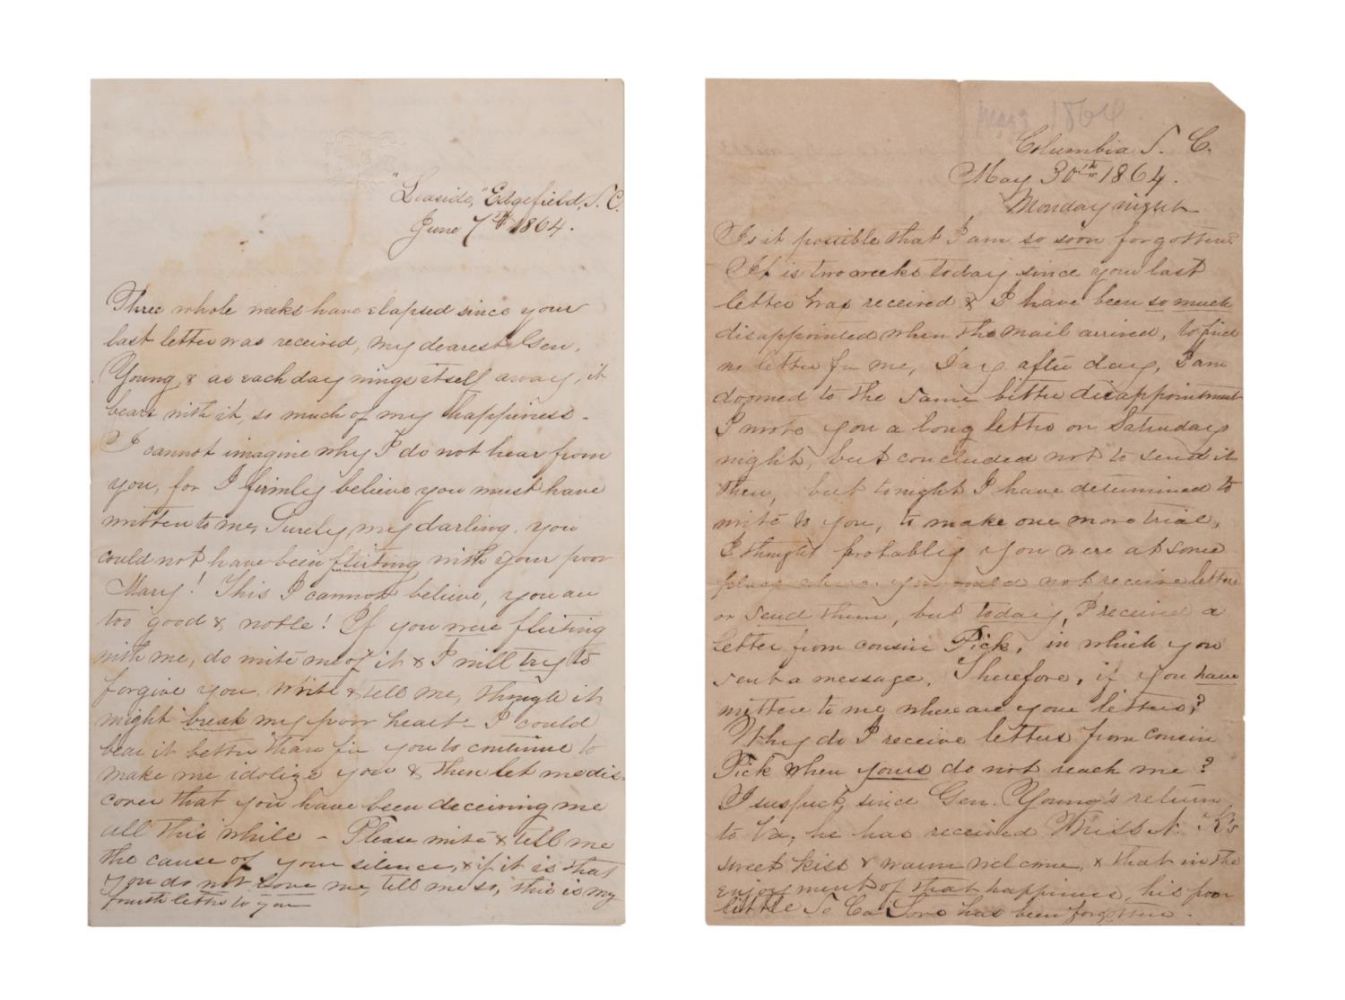 "Seaside," Edgefield, S. C.
June 7th 1864.
Three whole weeks have elapsed since your
last letter was received, my dearest Gen.
Young, & as each day wings itself away, it
bears with it, so much of my happiness -
I cannot imagine why I do not hear from
you, for I firmly believe you must have
written to me, Surely, my darling, you
could not have been flirting with your poor
Mary! This I cannot believe, you are
too good & noble! If you were flirting
with me, do write me of it & I will try to
forgive you. Write & tell me, though it
might break my poor heart. I could
bear it better than for you to continue to
make me idolize you & then let me dis-
cover that you have been deceiving me
all this while - Please write & tell me
the cause of your silence, & if it is that
you do not love me, tell me so, this is my
fourth letter to you
1864
Columbia S. C.
May 30th 1864.
Monday night
Is it possible that I am so soon forgotten?
It is two weeks today since your last
letter was received & I have been so much
disappointed when the mail arrived, to find
no letter for me, Day after day, I am
doomed to the same bitter disappointment
I wrote you a long letter on Saturday
night, but concluded not to send it
then, but tonight I have determined to
write to you, to make one more trial,
I thought probably you were at some
place where you could not receive letters
or send them, but today, I received a
letter from cousin Pick, in which you
sent a message. Therefore, if you have
written to me where are your letters?
Why do I receive letters from cousin
Pick when yours do not reach me?
I suspect, since Gen. Young's return
to Va, he has received Miss N. R's
sweet kiss & warm welcome, & that in the
enjoyment of that happiness, his poor
little So Ca Love has been forgotten.